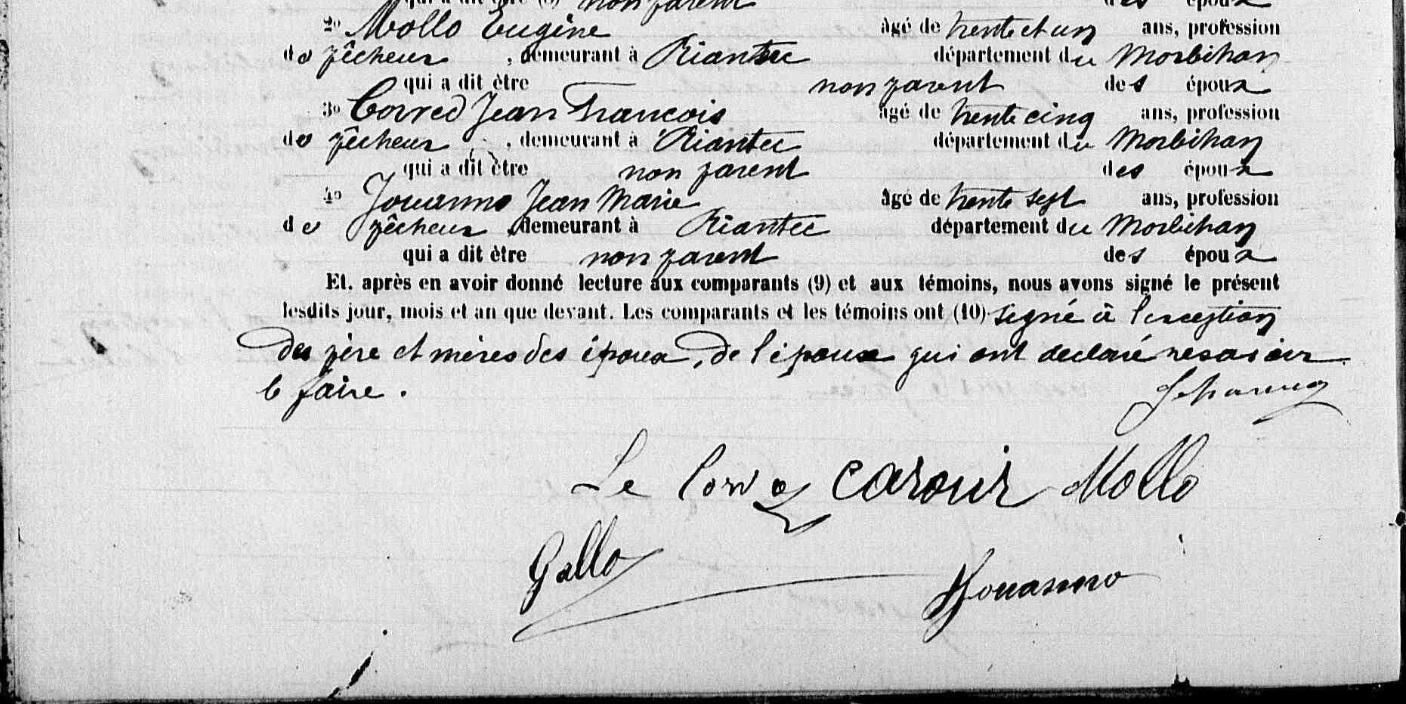 non parent des époux
2º Mollo Eugène âgé de trente et un ans, profession
de pêcheur, demeurant à Riantec département du Morbihan
qui a dit être non parent des époux
3º Corred Jean Francois âgé de trente cinq ans, profession
de pêcheur, demeurant à Riantec département du Morbihan
qui a dit être non parent des époux
4º Jouanno Jean Marie âgé de trente sept ans, profession
de pêcheur demeurant à Riantec département du Morbihan
qui a dit être non parent des époux
Et, après en avoir donné lecture aux comparants (9) et aux témoins, nous avons signé le présent
lesdits jour, mois et an que devant. Les comparants et les témoins ont (10) signé à l'exception
des père et mères des époux, de l'époux qui ont declaré ne savoir
le faire.
Le Mollo
Gallo Jouanno